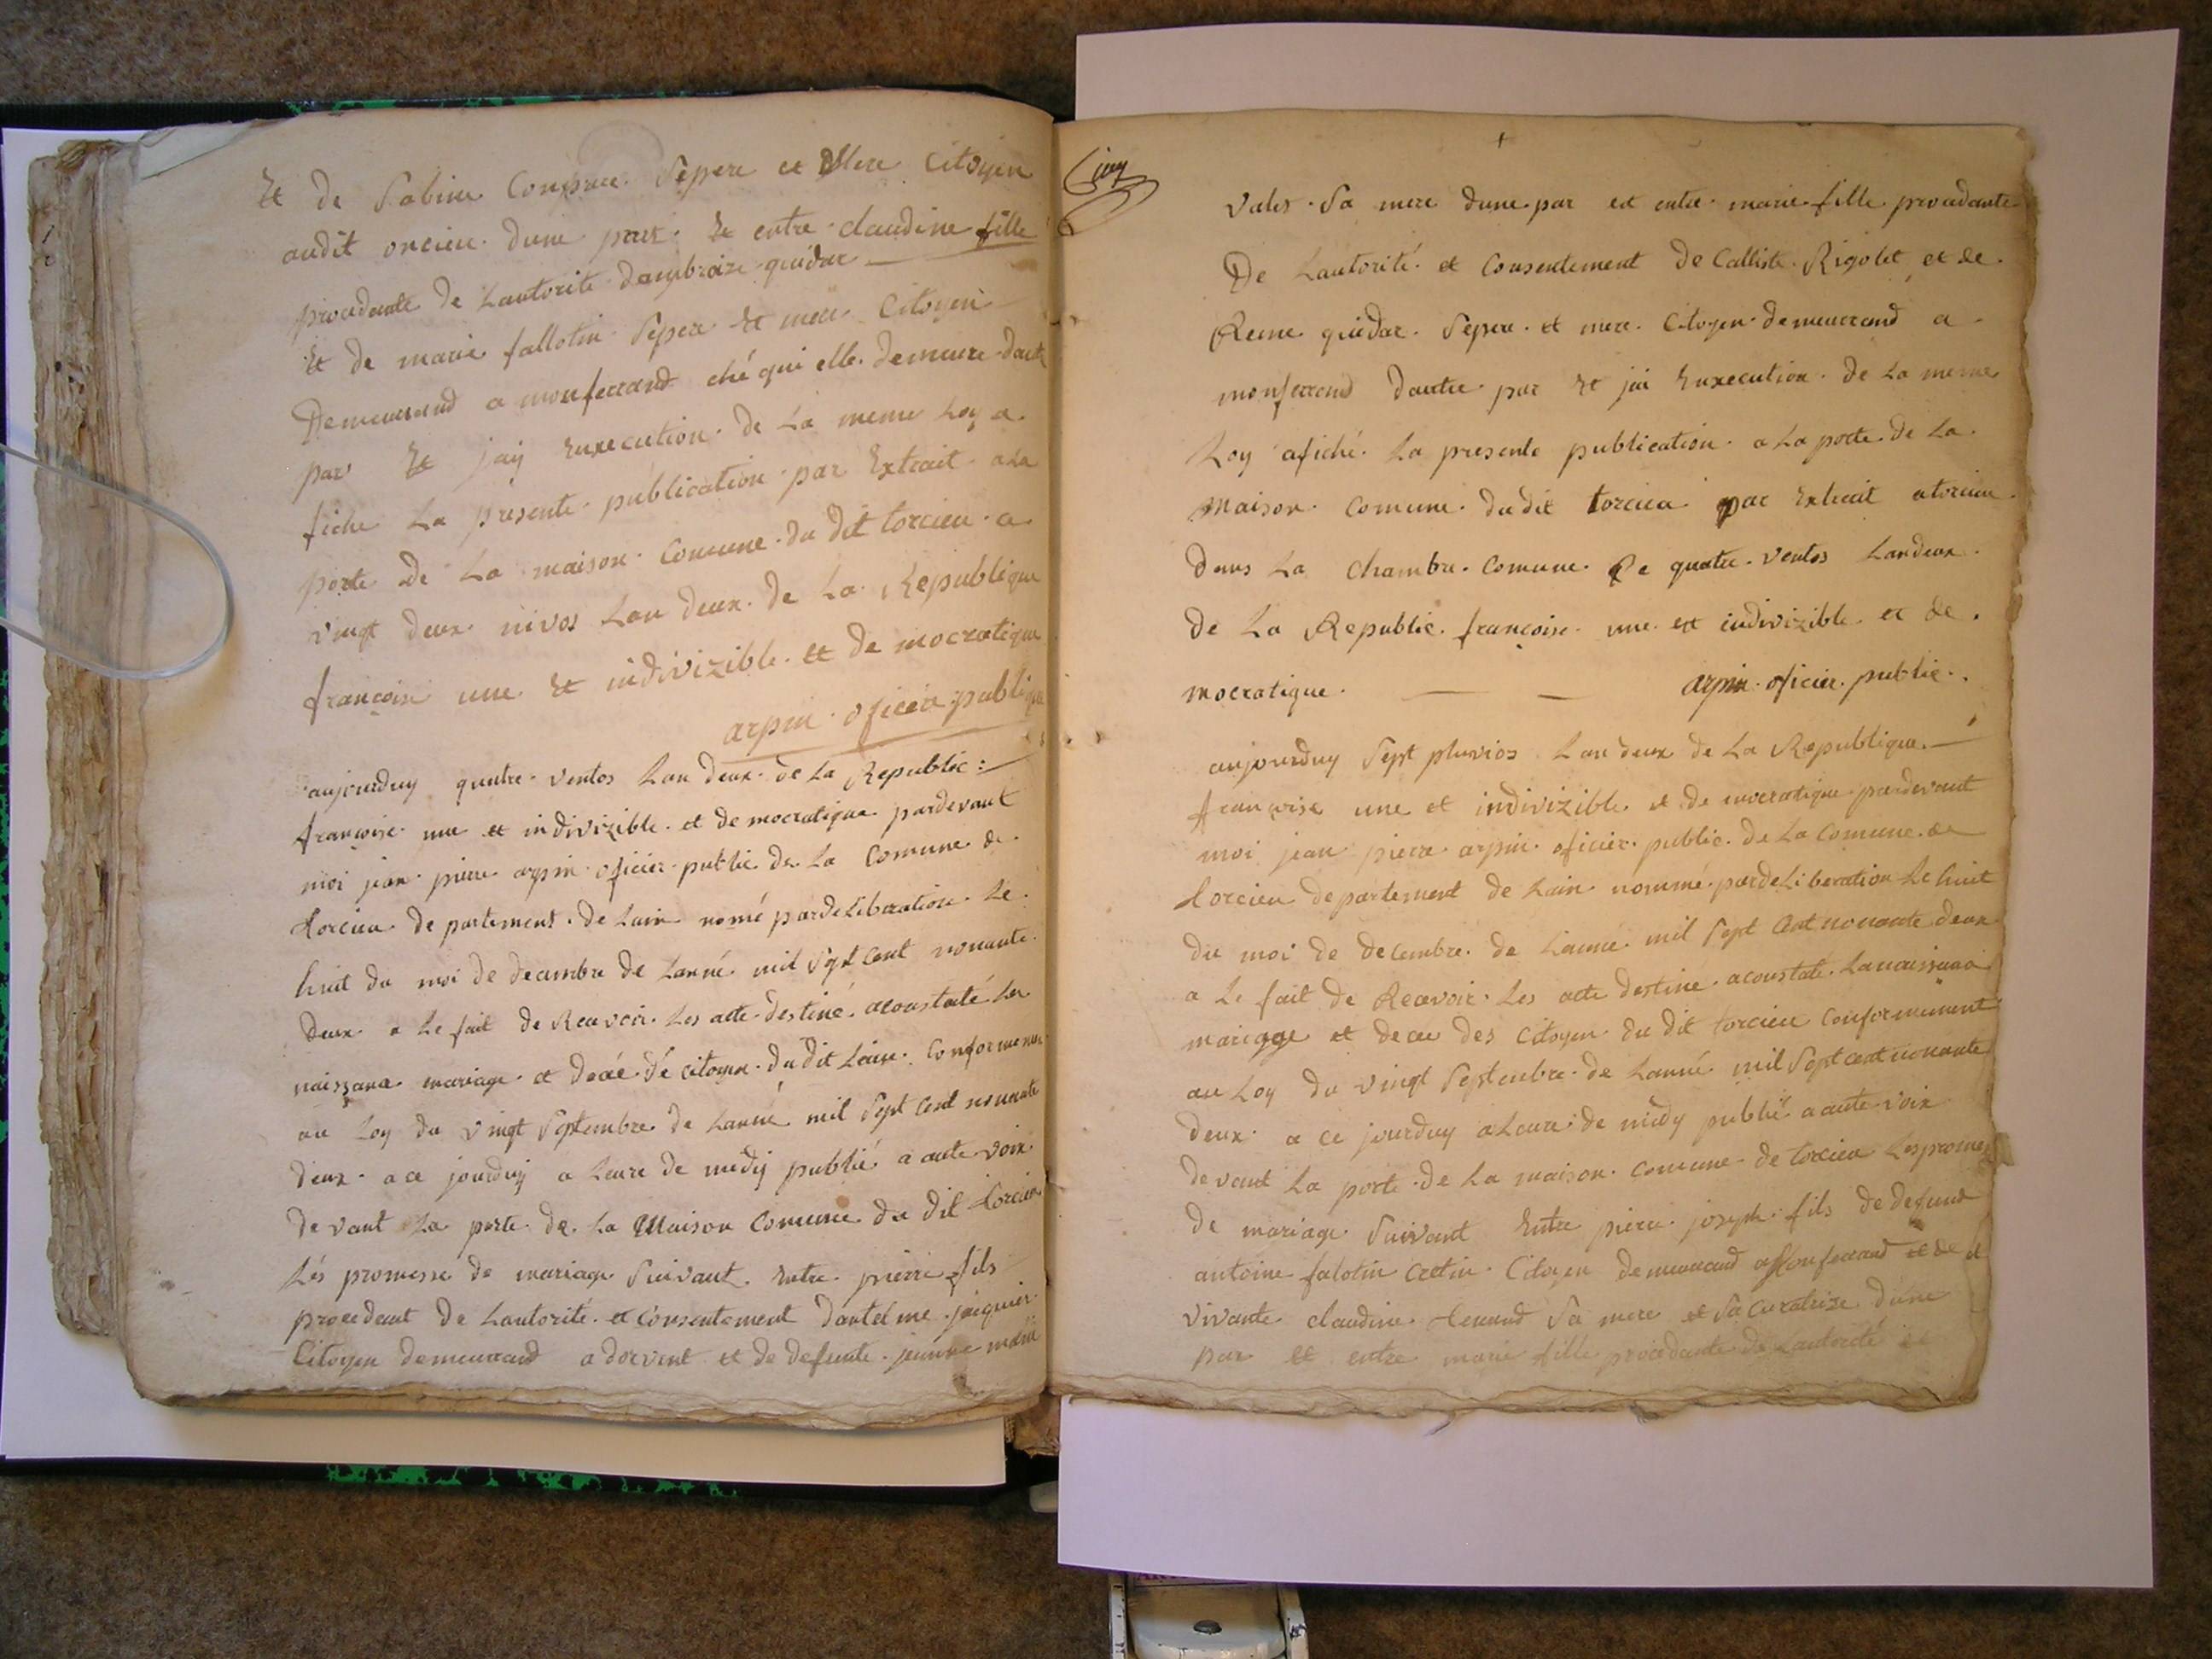 Et de Sabine Compare Sepere et Mere Citoyen
audit oncieu dune part Et entre claudine fille
procedente de Lautorite dambroize quidar
Et de marie fallotin Sepere Et mere Citoyen
Demeurand a monferrand ché qui elle demeure daut
par Et jay Enxecution de La meme Loy a
fiche La presente publication par Extrait a La
porte de La maison Comune du dit torcieu a
vingt deux nivos Lan deux de La Republique
françoise une Et indivizible et de mocratique
arpin oficier publique
aujourduy quatre ventos Lan deux de La Republic :
françoise une et indivizible et de mocratique pardevant
moi jean pierre arpin oficier public de La Comune de
torcieu de partement de Lain nomé pardeliberation Le
huit du moi de decembre de Lanné mil Sept Cent nonante
deux a Le fait de Recevoir Les acte destiné aconstaté La
naissance mariage et decé dé citoyen du dit Conformement
au Loy du vingt Septembre de Lanné mil Sept Cent nonante
deux a ce jourduy a Leure de midy publié a aute voix
de vant La porte de La Maison Comune du dit torcieu
Lés promesse de mariage Suivant Entre pierre fils
procedent de Lautorité et Consentement dantelme jacquier
Citoyen demeurrand a dorvent et de defunte jeanne marie
Cinq
vales Sa mere dune par et entre marie fille procedante
De Lautorité et Consentement de Calliste Rigolet et de
Reine quidar Sepere et mere Citoyen demeurrand a
monferrand dautre par Et jai Enxecution de La meme
Loy afiché La presente publication a La porte de La
Maison Comune du dit torcieu par Extrait a torcieu
dans La Chambre Comune Ce quatre ventos Landeux
de La Republic françoise une et indivizible et de
mocratique arpin oficier public
aujourduy Sept pluvios Lan deux de La Republique
françoise une et indivizible et de mocratique pardevant
moi jean pierre arpin oficier public de La Comune de
torcieu departement de Lain nommé pardeLiberation Le huit
du moi de decembre de Lanné mil Sept Cent nonante deux
a Le fait de Recevoir Les acte destine aconstaté Lanaissance
mariage et decee des Citoyen du dit torcieu Conformement
au Loy du vingt Septembre de Lanné mil Sept cent nonante
deux a ce jourduy a Leure de midy publié a aute voix
devant La porte de La maison Comune de torcieu Lespromes
de mariage Suivant Entre pierre joseph fils de defunt
antoine falotin Cretin Citoyen demeurrand a Monferrand et de
vivante claudine Sa mere et Sa Curatrize dune
par et entre marie fille procedante de Lautorité et